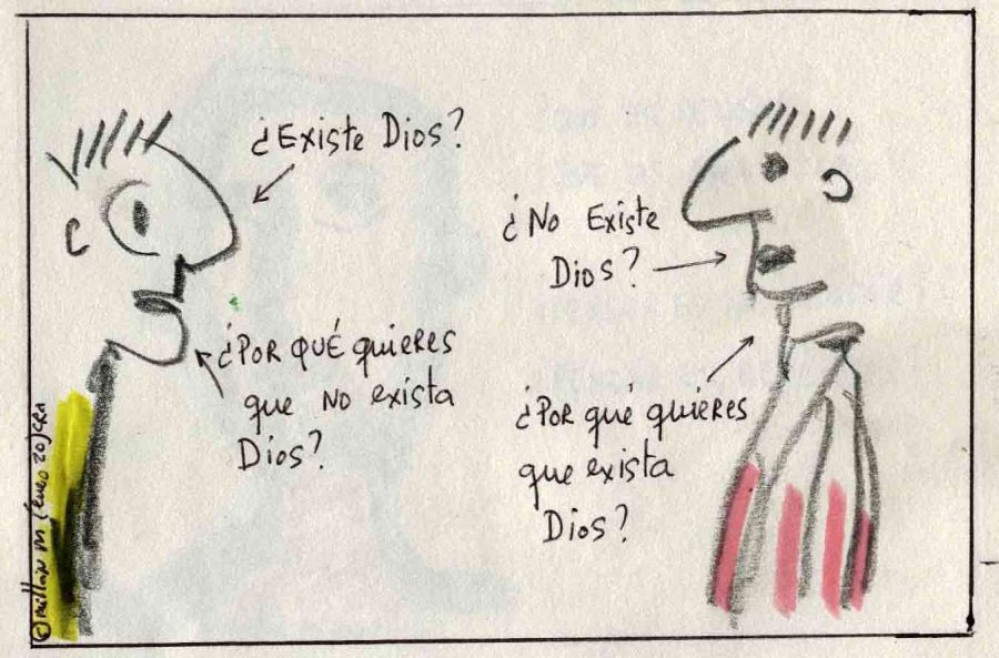 ¿Existe Dios?
¿POR QUÉ quieres
que NO exista
Dios?
¿No Existe
Dios?
¿Por qué quieres
que exista
Dios?
© millán m